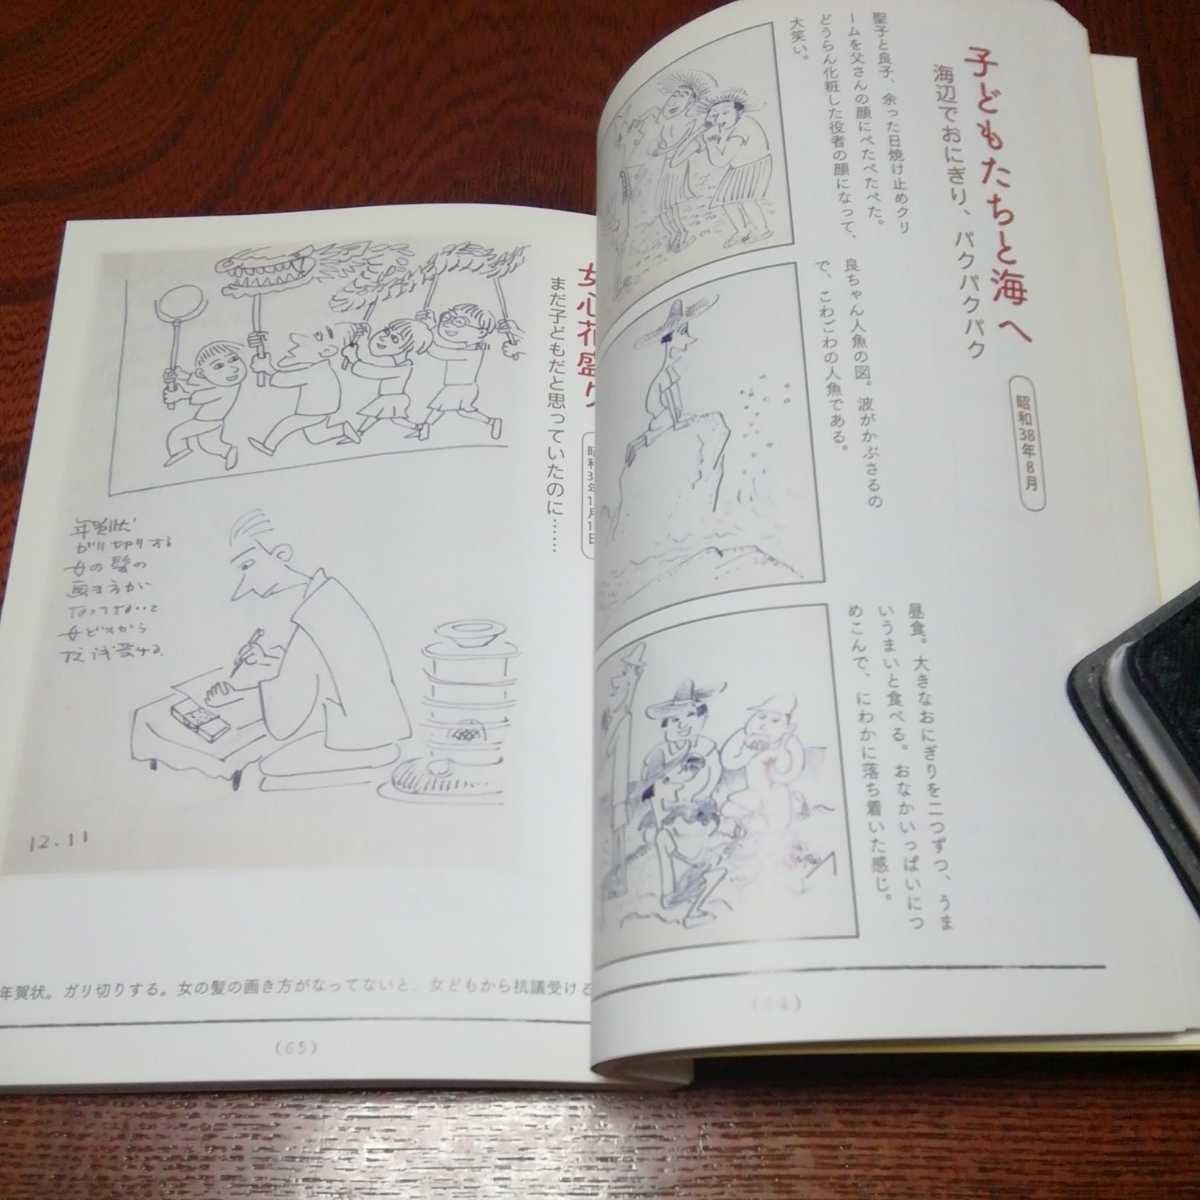 子どもたちと海へ
海辺でおにぎり、パクパクパク
昭和38年8月
聖子と良子、余った日焼け止めクリ
ームを父さんの顔にぺたぺたぺた。
どうらん化粧した役者の顔になって、
大笑い。
良ちゃん人魚の図。波がかぶさるの
で、こわごわの人魚である。
昼食。大きなおにぎりを二つずつ、うま
いうまいと食べる。おなかいっぱいにつ
めこんで、にわかに落ち着いた感じ。
(64)
女心花盛り
まだ子どもだと思っていたのに……
年賀状
ガリ切りする
女の髪の
画き方が
なってないと
女どもから
抗議受ける
12.11
年賀状。ガリ切りする。女の髪の画き方がなってないと、女どもから抗議受ける
(65)